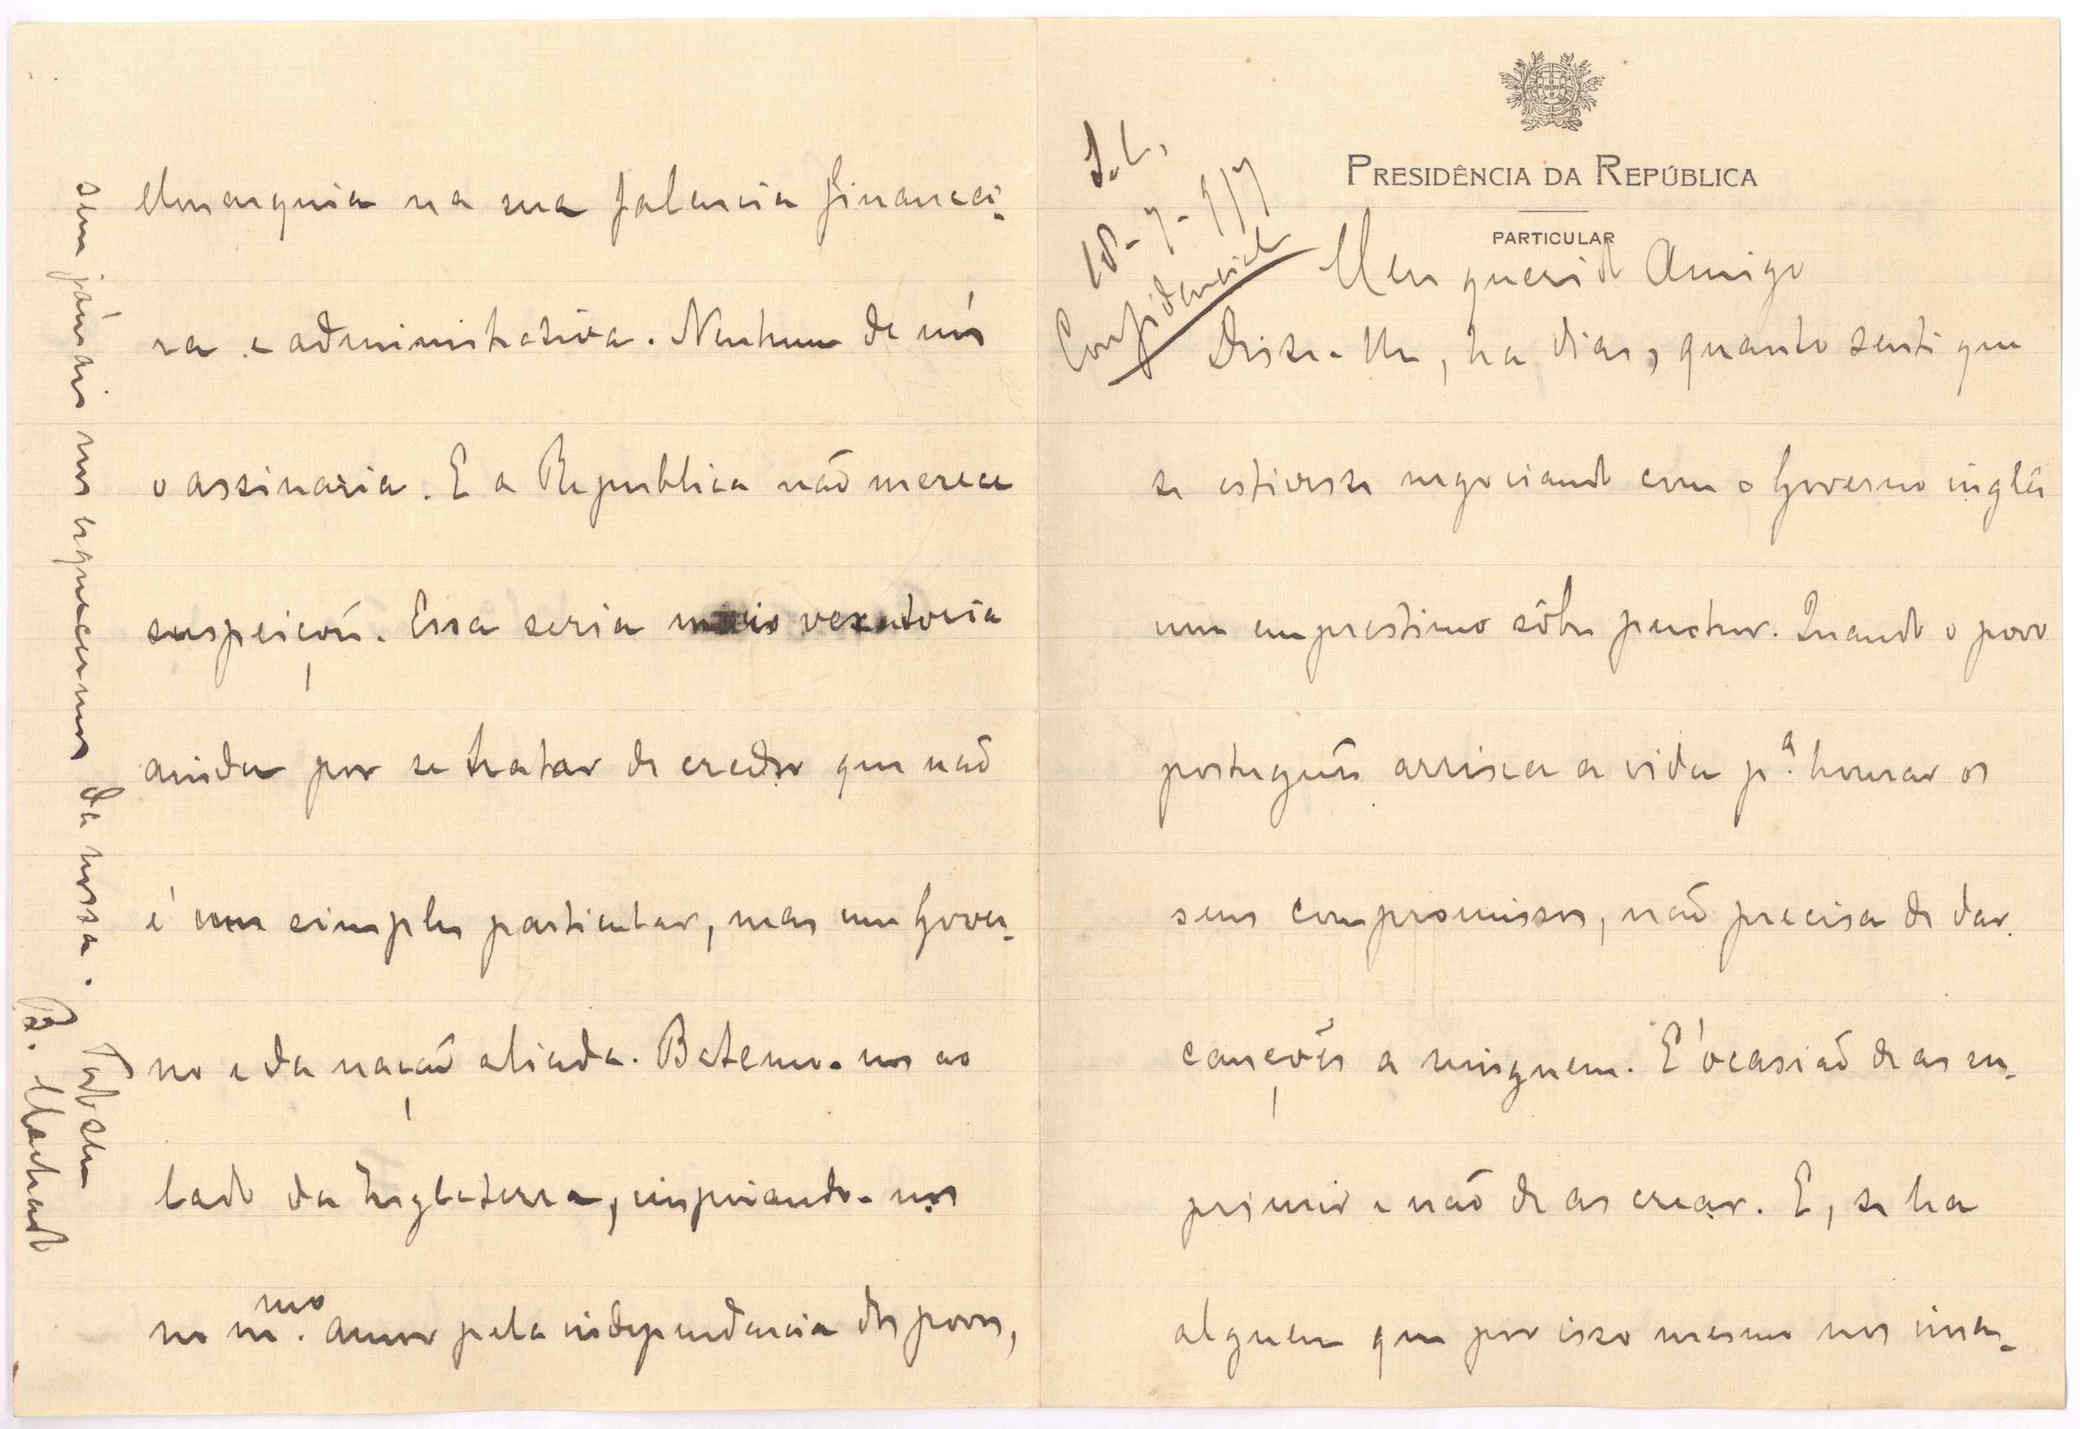 PRESIDÊNCIA DA REPÚBLICA
PARTICULAR
S.C.
18-7-917
Confidencial
Meu querido Amigo
Disse-lhe, ha dias, quanto senti que
se estivesse negociando com o Governo inglês
um emprestimo sôbre penhor. Quando o povo
português arrisca a vida p.ª honrar os
seus compromissos, não precisa de dar
cauções a ninguem. E' ocasião de as su-
primir e não de as crear. E, se ha
alguem que por isso mesmo nos
Monarquia na sua falencia financei-
ra e administrativa. Nenhum de nós
o assinaria. E a Republica não merece
suspeições. Essa seria mais vexatoria
ainda por se tratar de credor que não
é um simples particular, mas um Gover-
no e da nação aliada. Batemo-nos ao
lado da Inglaterra, inspirando-nos
no m.mo amor pela independencia dos povos,
sem jámais nos esquecermos da nossa.
Todo seu
B. Machado